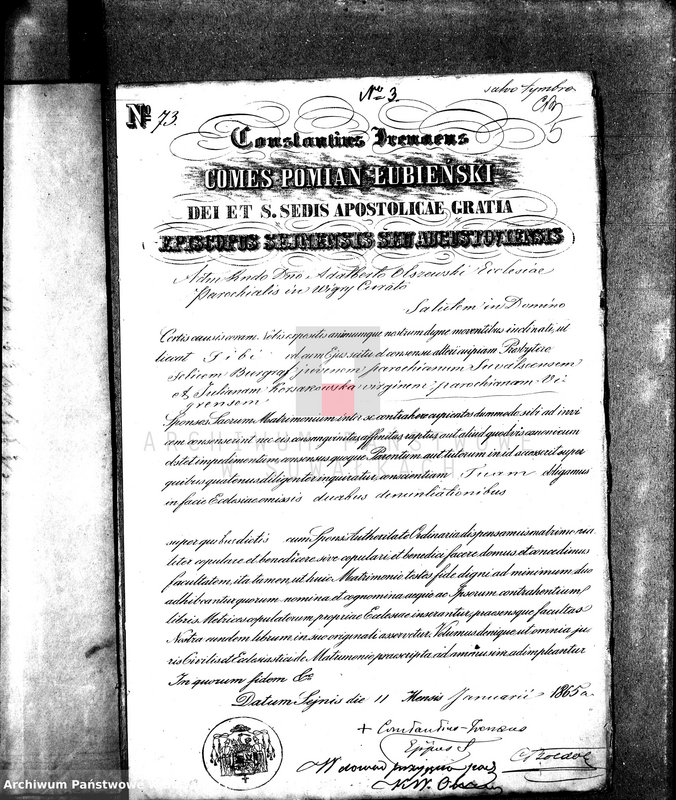 No 3.
salvo Symbro
No 73.
Constantius Irenaeus
COMES POMIAN ŁUBIEŃSKI
DEI ET S. SEDIS APOSTOLICAE GRATIA
EPISCOPUS SEJNENSIS SEU AUGUSTOVIENSIS
Admodum Rndo Dno Adalberto Olszewski Ecclesiae
Parochialis in Wigry Curato
Salutem in Domino
Certis causis coram Nobis expositis animumque nostrum digne moventibus inclinati, ut
liceat Tibi vel cum Ejus scitu et consensu alteri cuipiam Presbytero
Burgraf juvenem parochianum Suvalscensem
et Julianam Korsakowska virginem parochianam Vi-
grensem
Sponsos Sacrum Matrimonium inter se contrahere cupientes dummodo sibi ad invi-
cem consenserint nec eis consanguinitas affinitas raptus aut aliud quodvis canonicum
obstet impedimentum, consensus quoque Parentum aut tutorum in id accesserit super
quibus quatenus diligenter inquiratur, conscientiam Tuam obligamus
in facie Ecclesiae omissis duabus denuntiationibus
super quibus dictis cum Sponsis Authoritate Ordinaria dispensamus matrimonia-
liter copulare et benedicere sive copulari et benedici facere damus et concedimus
facultatem, ita tamen, ut huic Matrimonio testes fide digni ad minimum duo
adhibeantur quorum nomina et cognomina aeque ac Ipsorum contrahentium
libris Metrices copulatorum propriae Ecclesiae inserantur, praesensque facultas
Nostra eundem librum in suo originali asservetur. Volumus denique ut omnia ju-
ris Civilis et Ecclesiastici de Matrimonio praescripta ad amussim adimpleantur
In quorum fidem &c
Datum Sejnis die 11 Mensis Januarii 1865 a.
+ Constantius Irenaeus
Eppus S.
W dowód przyjęcia
Archiwum Państwowe
ARCHIWUM PAŃSTWOWE
W SUWAŁKACH